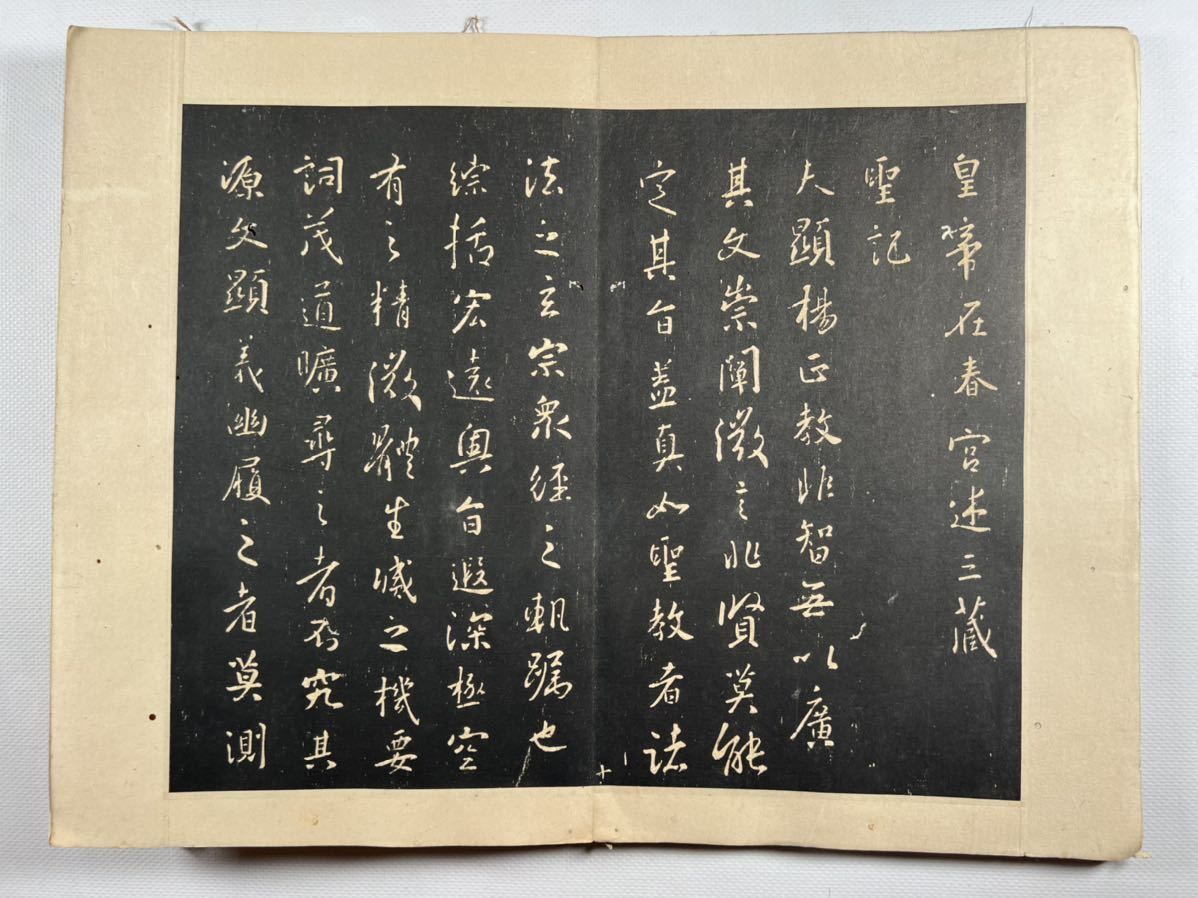 皇帝在春宫述三藏
聖記
夫顯楊正教非智無以廣
其文崇闡微言非賢莫能
定其旨盖真如聖教者諸
法之玄宗衆經之軌躅也
綜括宏遠奥旨遐深極空
有之精微體生滅之機要
詞茂道曠尋之者不究其
源文顯義幽履之者莫測